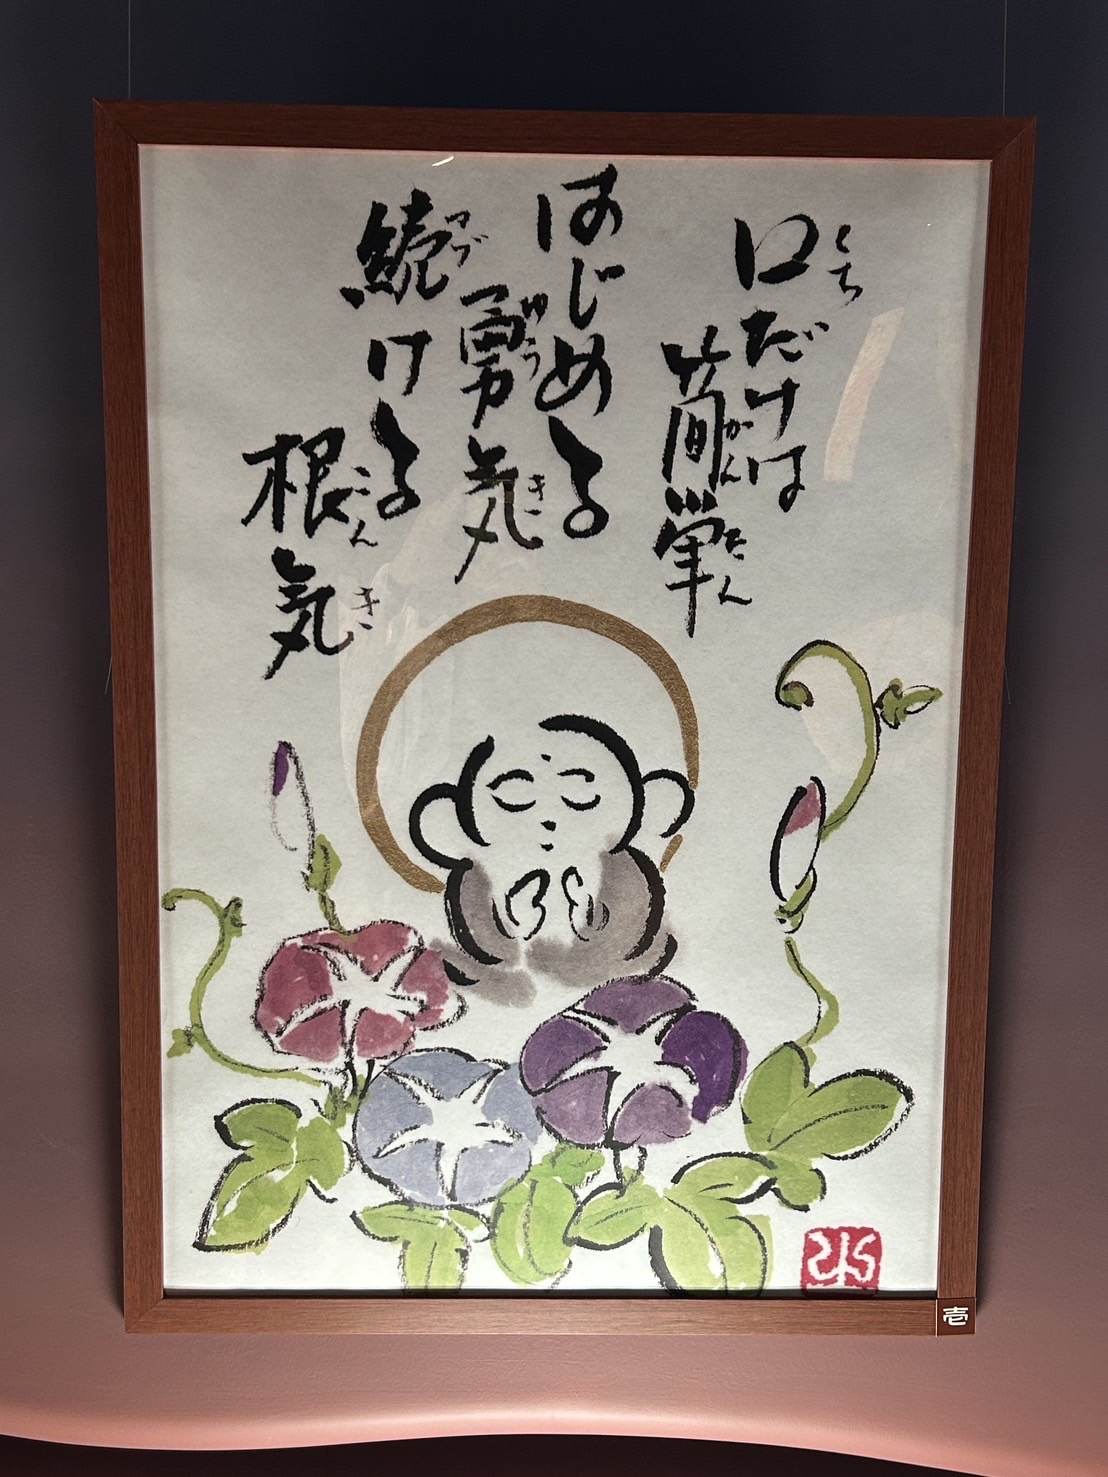 口だけは
くち
簡単
かんたん
はじめる
勇気
ゆうき
続ける
つづ
根気
こんき
壱